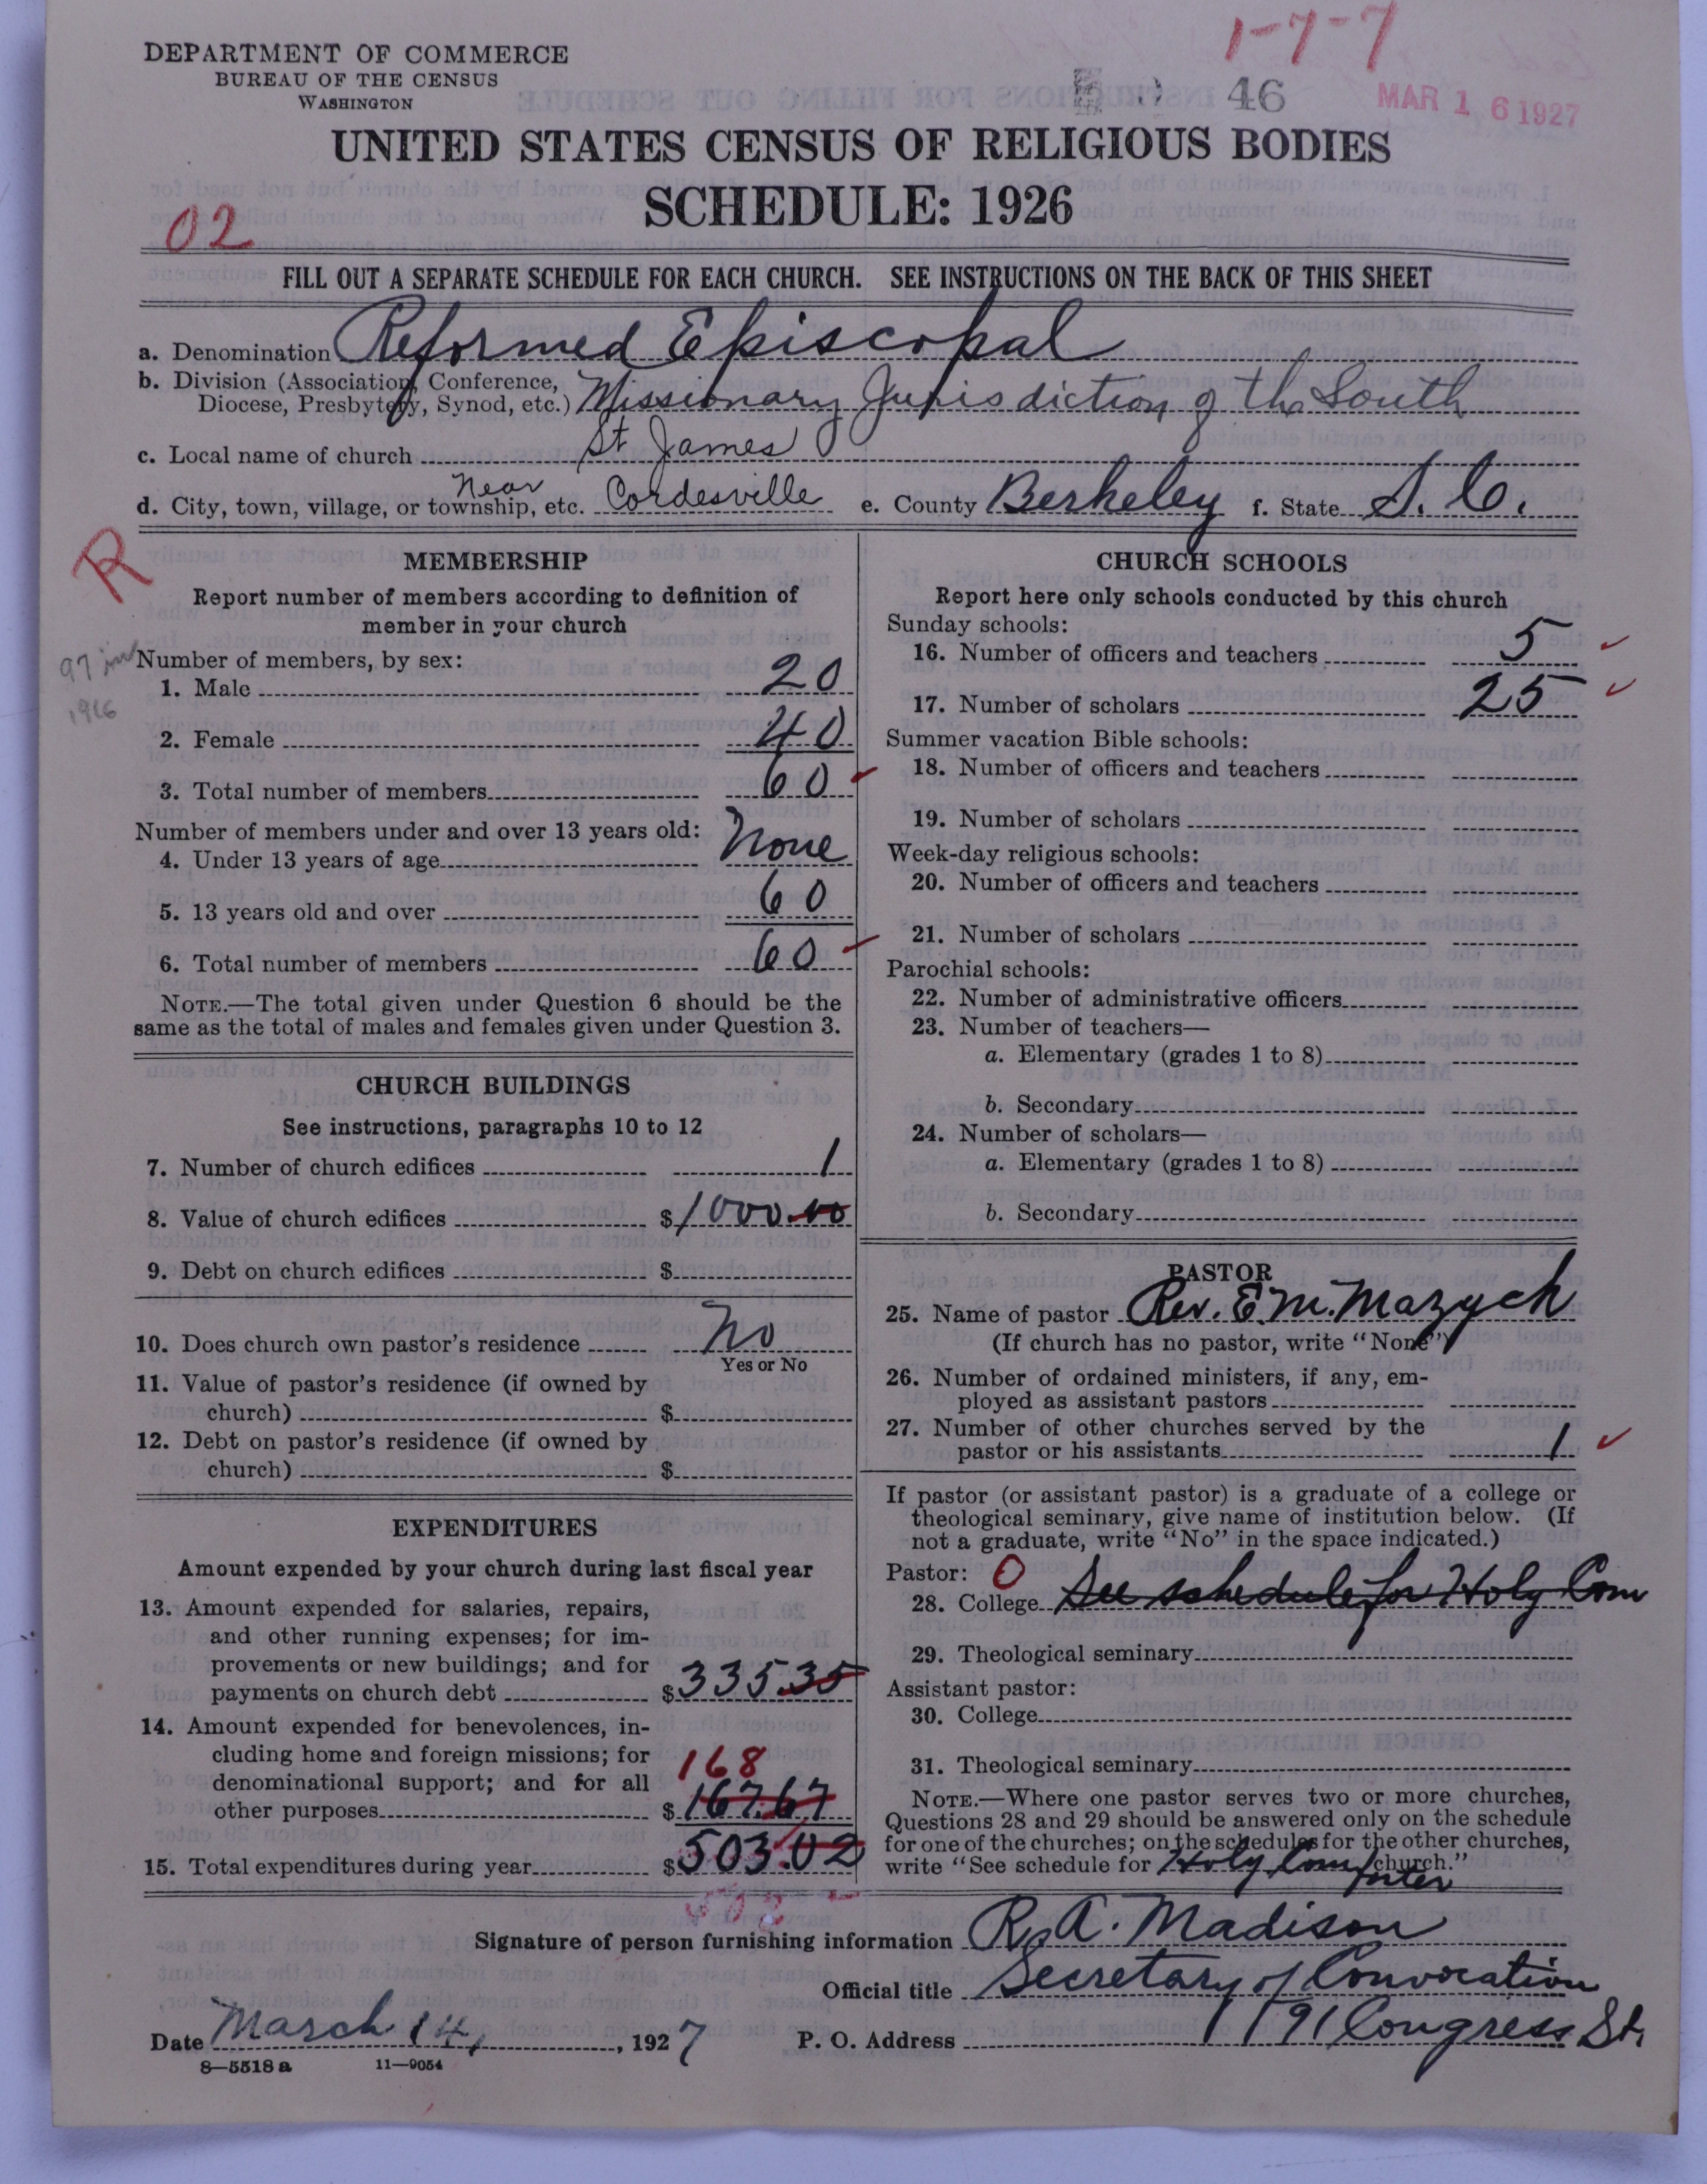 1-7-7
DEPARTMENT OF COMMERCE
BUREAU OF THE CENSUS
WASHINGTON
46
MAR 16 1927
UNITED STATES CENSUS OF RELIGIOUS BODIES
SCHEDULE: 1926
02
FILL OUT A SEPARATE SCHEDULE FOR EACH CHURCH. SEE INSTRUCTIONS ON THE BACK OF THIS SHEET
a. Denomination Reformed Episcopal
b. Division (Association, Conference,
Diocese, Presbytery, Synod, etc.) Missionary Jurisdiction of the South
c. Local name of church St James
d. City, town, village, or township, etc. Near Cordesville e. County Berkeley f. State S. C.
R
MEMBERSHIP
Report number of members according to definition of
member in your church
97 in
1916
Number of members, by sex:
1. Male 20
2. Female 40
3. Total number of members 60
Number of members under and over 13 years old:
4. Under 13 years of age None
5. 13 years old and over 60
6. Total number of members 60
NOTE.—The total given under Question 6 should be the
same as the total of males and females given under Question 3.
CHURCH BUILDINGS
See instructions, paragraphs 10 to 12
7. Number of church edifices 1
8. Value of church edifices $1000.00
9. Debt on church edifices $
10. Does church own pastor's residence No
Yes or No
11. Value of pastor's residence (if owned by
church) $
12. Debt on pastor's residence (if owned by
church) $
EXPENDITURES
Amount expended by your church during last fiscal year
13. Amount expended for salaries, repairs,
and other running expenses; for im-
provements or new buildings; and for
payments on church debt $335.35
14. Amount expended for benevolences, in-
cluding home and foreign missions; for
denominational support; and for all 168
other purposes $167.67
15. Total expenditures during year $503.02
CHURCH SCHOOLS
Report here only schools conducted by this church
Sunday schools:
16. Number of officers and teachers 5
17. Number of scholars 25
Summer vacation Bible schools:
18. Number of officers and teachers
19. Number of scholars
Week-day religious schools:
20. Number of officers and teachers
21. Number of scholars
Parochial schools:
22. Number of administrative officers
23. Number of teachers—
a. Elementary (grades 1 to 8)
b. Secondary
24. Number of scholars—
a. Elementary (grades 1 to 8)
b. Secondary
PASTOR
25. Name of pastor Rev. E. M. Mazych
(If church has no pastor, write "None")
26. Number of ordained ministers, if any, em-
ployed as assistant pastors
27. Number of other churches served by the
pastor or his assistants 1
If pastor (or assistant pastor) is a graduate of a college or
theological seminary, give name of institution below. (If
not a graduate, write "No" in the space indicated.)
Pastor: 0
28. College See schedule for Holy Com
29. Theological seminary
Assistant pastor:
30. College
31. Theological seminary
NOTE.—Where one pastor serves two or more churches,
Questions 28 and 29 should be answered only on the schedule
for one of the churches; on the schedules for the other churches,
write "See schedule for Holy Comforter church."
Signature of person furnishing information R. A. Madison
Official title Secretary of Convocation
Date March 14, 1927 P. O. Address 191 Congress St.
8—5518 a 11—9054